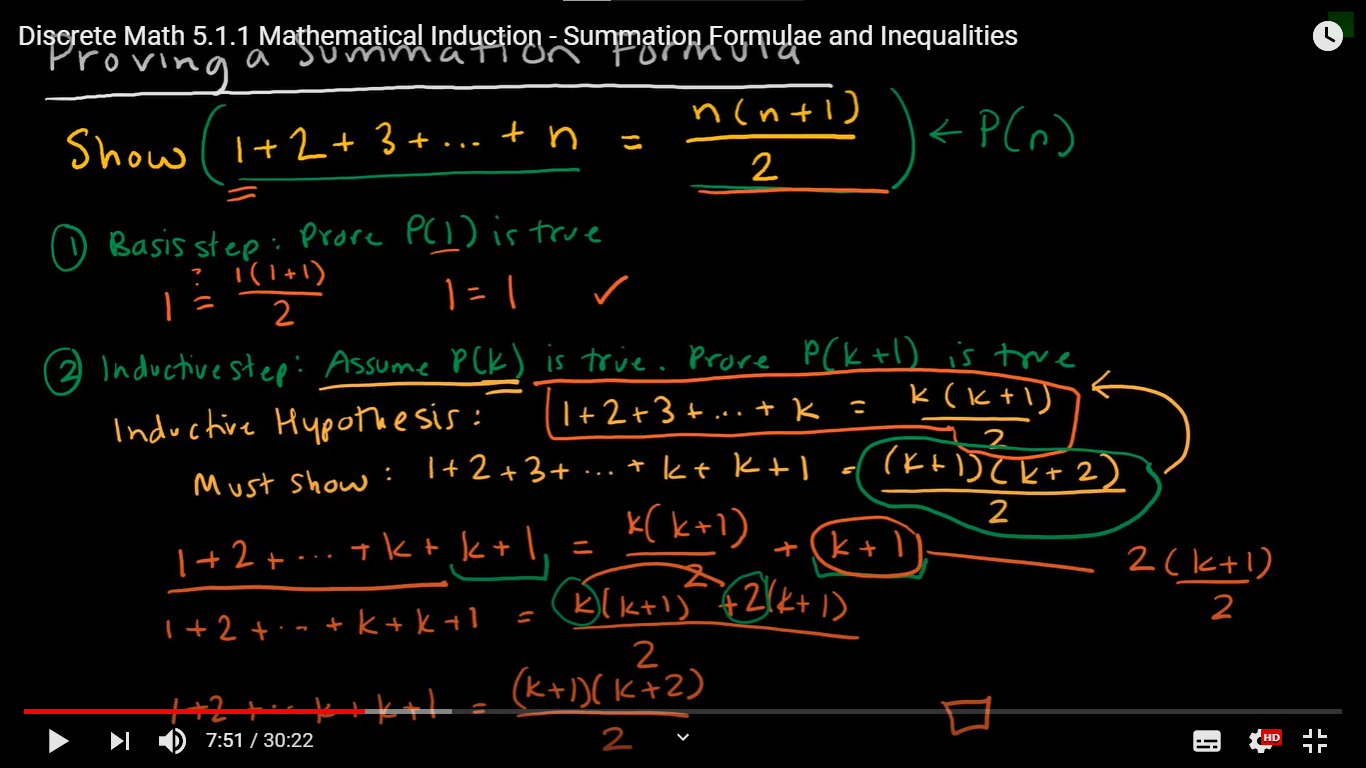 Discrete Math 5.1.1 Mathematical Induction - Summation Formulae and Inequalities
Proving a Summation Formula
Show (1+2+3+...+n = n(n+1)/2) ← P(n)
① Basis step: Prove P(1) is true
1 ?= 1(1+1)/2 1 = 1 ✓
② Inductive step: Assume P(k) is true. Prove P(k+1) is true
Inductive Hypothesis: 1+2+3+...+k = k(k+1)/2
Must show: 1+2+3+...+k+k+1 = (k+1)(k+2)/2
1+2+...+k+k+1 = k(k+1)/2 + k+1 2(k+1)/2
1+2+...+k+k+1 = k(k+1)+2(k+1)/2
1+2+...k+k+1 = (k+1)(k+2)/2 □
7:51 / 30:22
HD